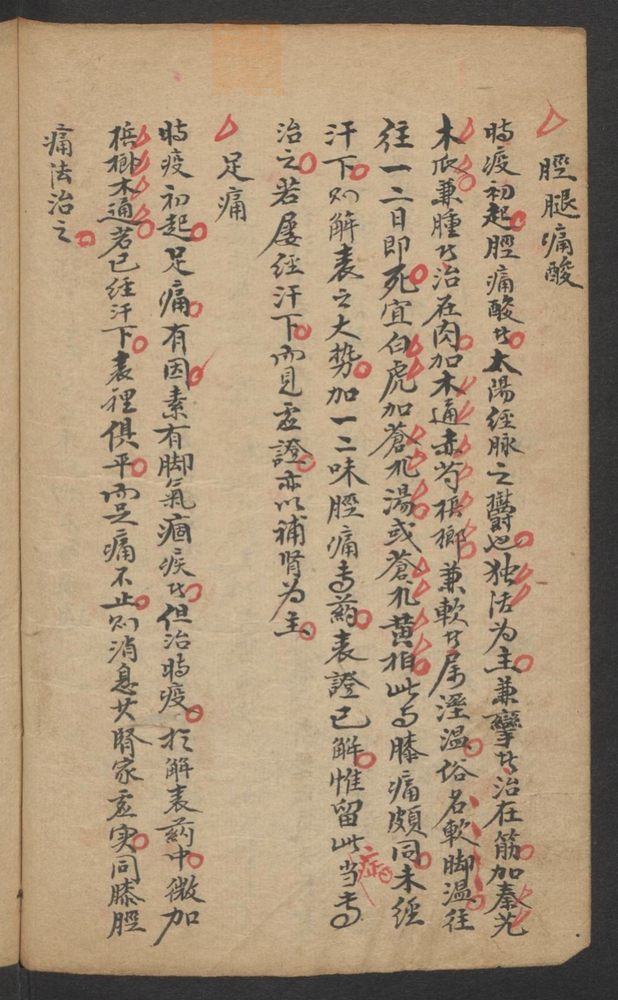 脛腿痛酸
時疫初起脛痛酸者太陽經脉之鬱也独活为主兼攣者治在筋加秦艽
木瓜兼腫者治在肉加木通赤芍槟榔兼軟者屬溼温俗名軟脚温往
往一二日即死宜白虎加蒼朮湯或蒼朮黄柏此与膝痛頗同未經
汗下則解表之大勢加一二味脛痛专药表證已解惟留此症当专
治之若屡經汗下而見虚證亦以補腎为主
足痛
時疫初起足痛有因素有脚氣痼疾者但治時疫於解表药中微加
槟榔木通若已経汗下表裡俱平而足痛不止則消息其腎家虚实同膝脛
痛法治之